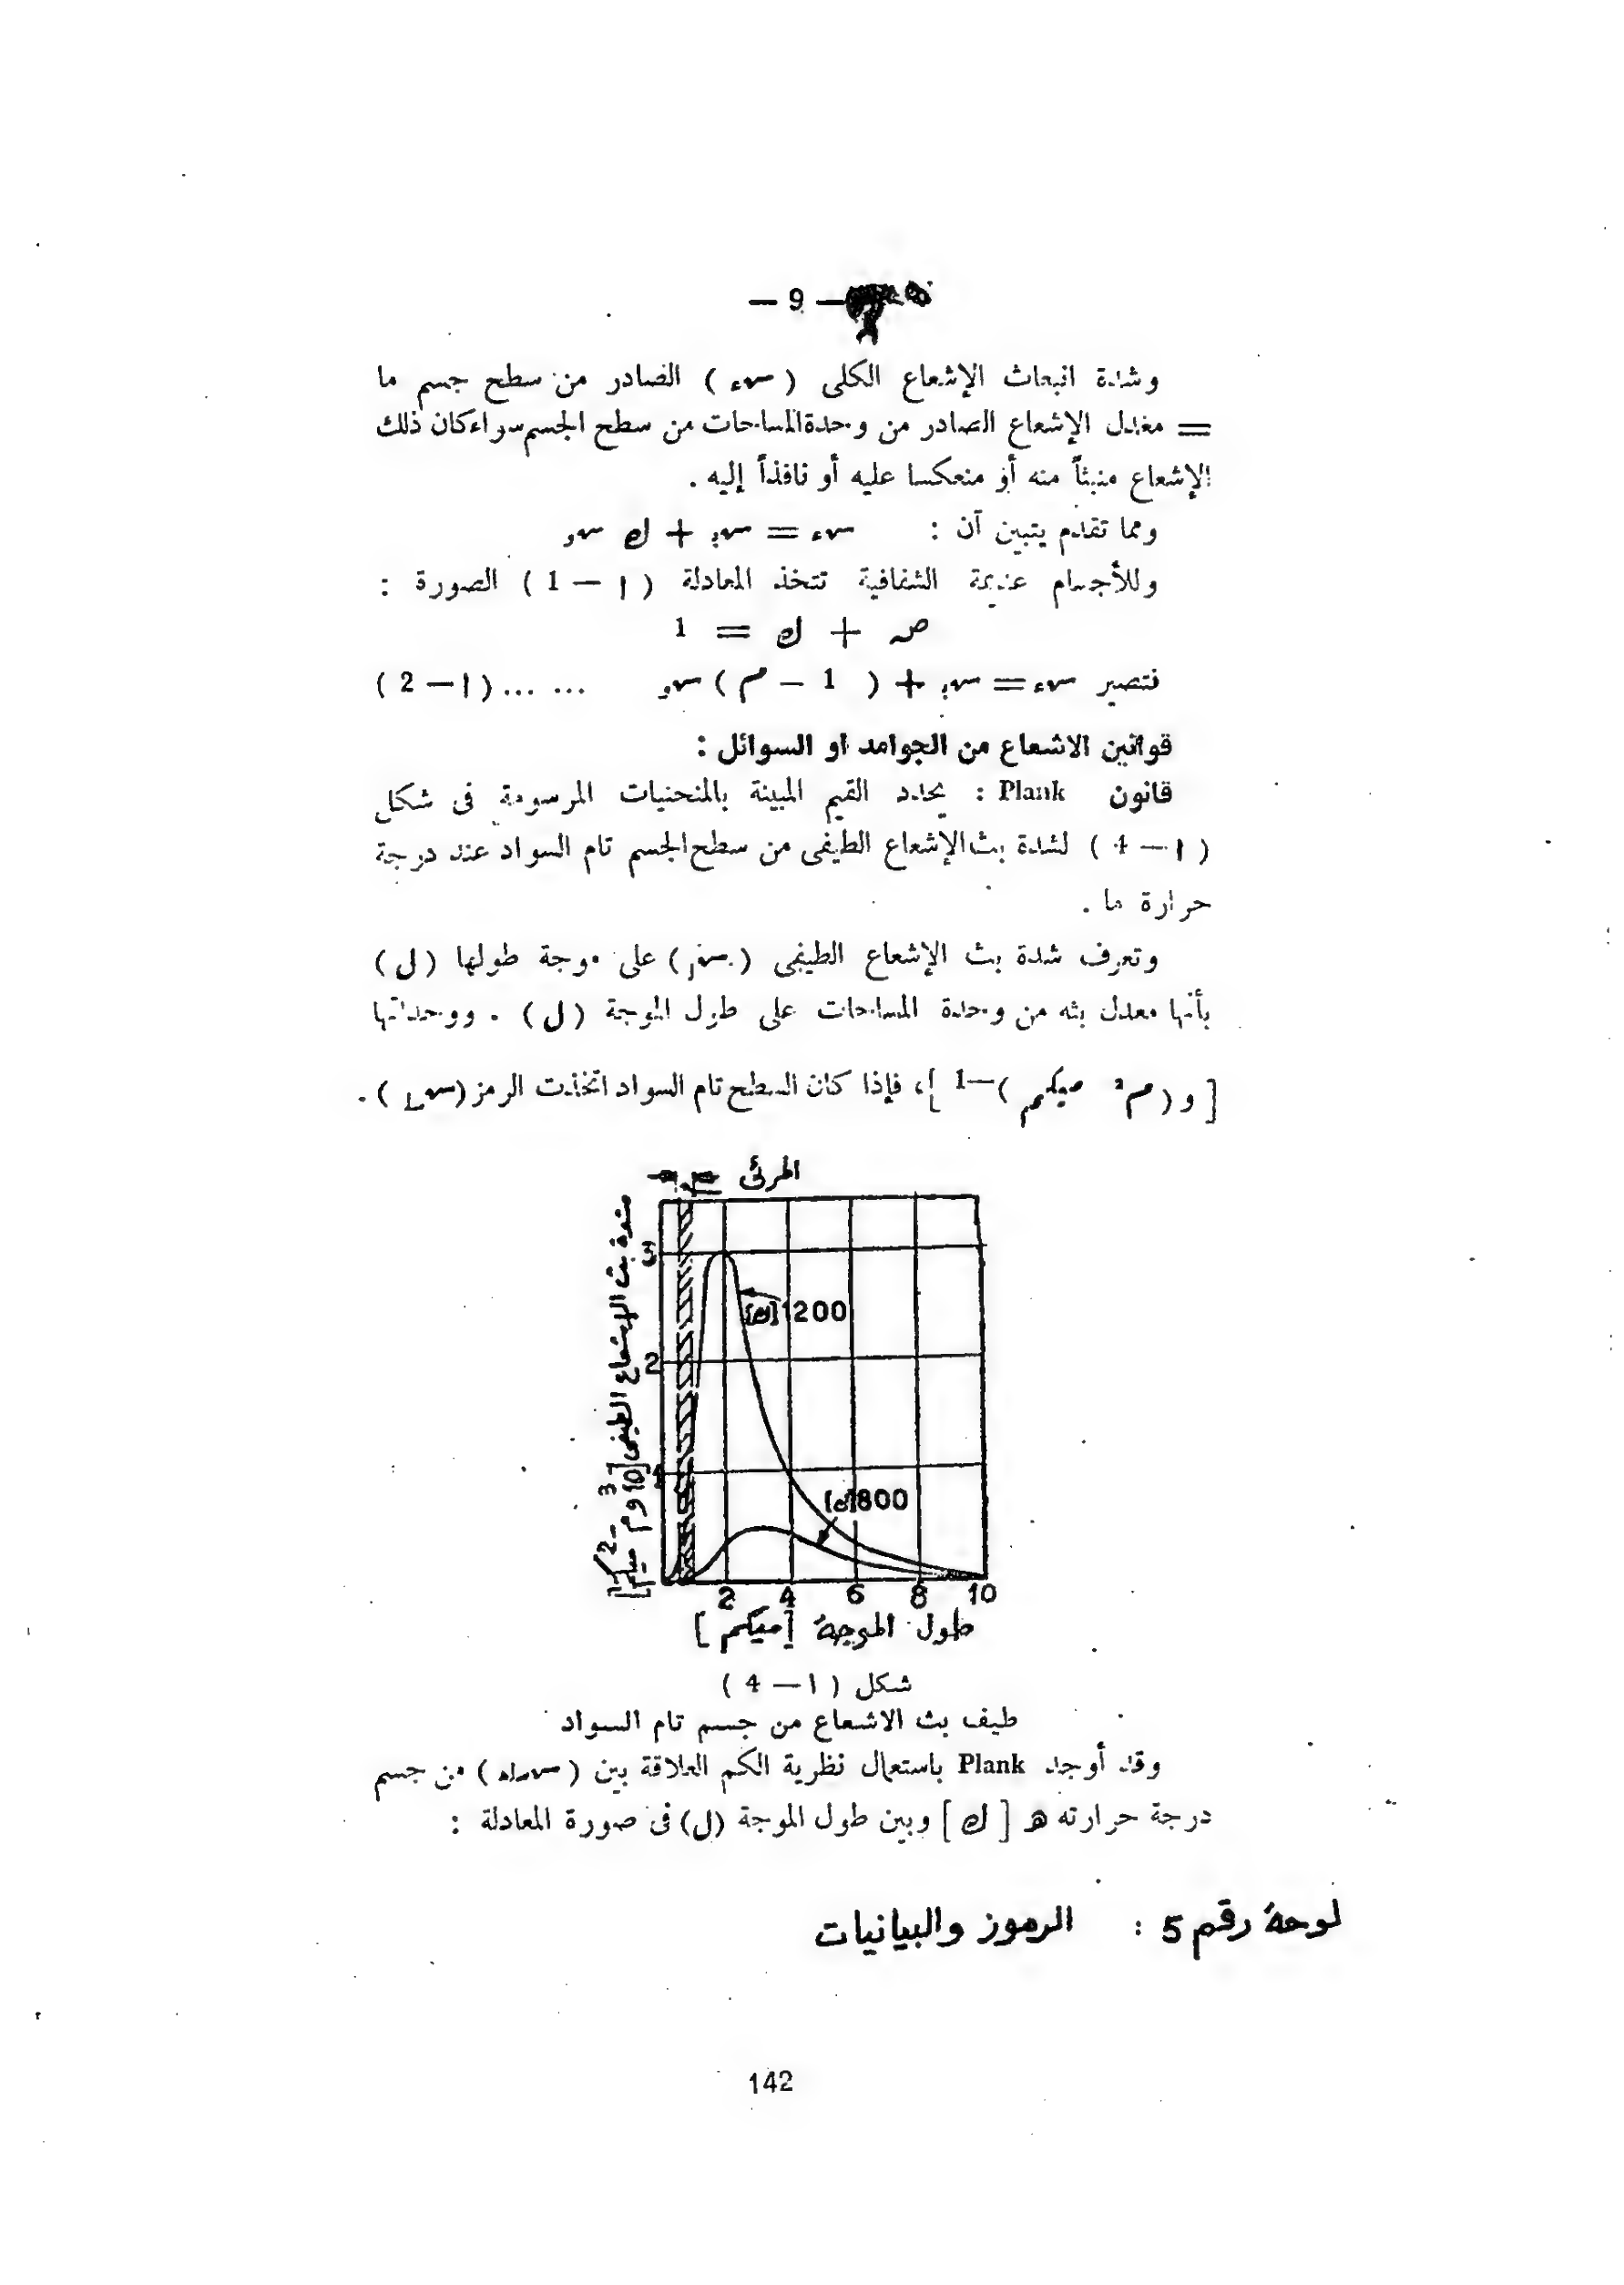 — 9 —
وشدة انبعاث الإشعاع الكلى ( سء ) الصادر من سطح جسم ما
= معدل الإشعاع الصادر من وحدة المساحات من سطح الجسم سواء كان ذلك
الإشعاع منبثاً منه أو منعكسا عليه أو نافذاً إليه .
ومما تقدم يتبين أن : سء = س + ك س
وللأجسام عديمة الشفافية تتخذ المعادلة ( ا — 1 ) الصورة :
ص + ك = 1
فتصير سء = س + ( 1 – م ) س ... ... ( ا — 2 )
قوانين الاشعاع من الجوامد او السوائل :
قانون Plank : يحدد القيم المبينة بالمنحنيات المرسومة فى شكل
( ا — 4 ) لشدة بث الإشعاع الطيفى من سطح الجسم تام السواد عند درجة
حرارة ما .
وتعرف شدة بث الإشعاع الطيفى ( ) على موجة طولها ( ل )
بأنها معدل بثه من وحدة المساحات على طول الموجة ( ل ) . ووحداتها
[ و ( م² ميكم ) —1 ] ، فإذا كان السطح تام السواد اتخذت الرمز ( ) .
المرئى
شدة بث الإشعاع الطيفى
3
[ك] 1200
2
1
[ك] 800
2 4 6 8 10
طول الموجة [ ميكم ]
شكل ( ا — 4 )
طيف بث الاشعاع من جسم تام السواد
وقد أوجد Plank باستعمال نظرية الكم العلاقة بين ( ) من جسم
درجة حرارته ه [ ك ] وبين طول الموجة (ل) فى صورة المعادلة :
لوحة رقم 5 : الرموز والبيانيات
142